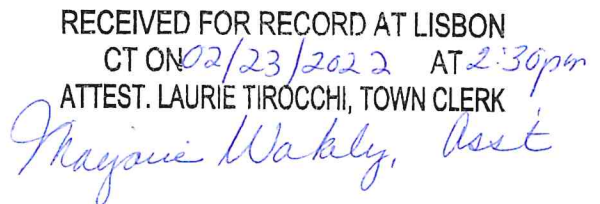 RECEIVED FOR RECORD AT LISBON
CT ON 02/23/2022 AT 2:30pm
ATTEST. LAURIE TIROCCHI, TOWN CLERK
Marjorie Wakely, Asst